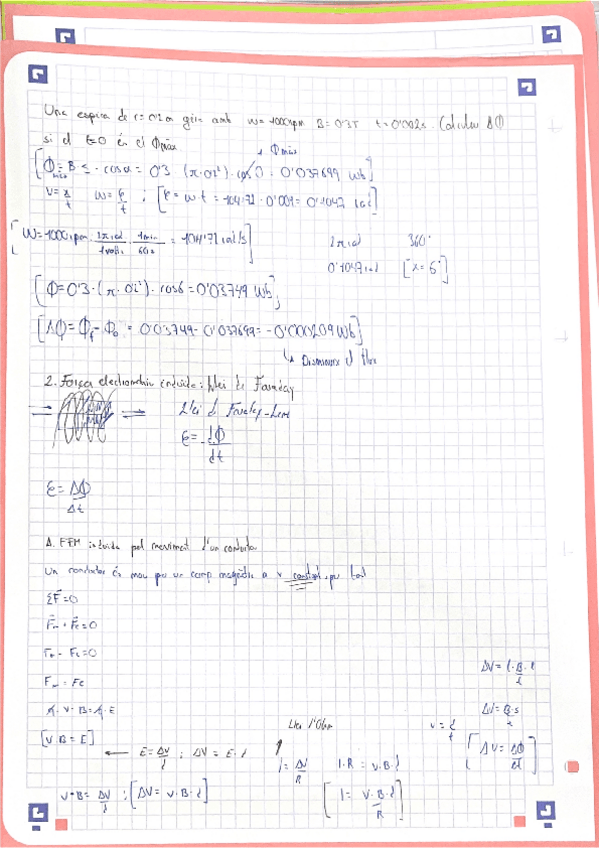 Una espira de r=0'2m gira amb w=1000rpm B=0'3T t=0'002s. Calcular ΔΦ
si el t=0 és el Φmàx
Φmàx
[Φmàx= B S · cosα = 0'3 (π·0'2²)·cos0 = 0'037699 Wb]
w= φ/t ; [φ = w·t = 104'72 · 0'001= 0'1047 rad]
[W=1000rpm · 2π rad/1 volta · 1min/60s = 104'72 rad/s]
2π rad 360°
0'1047 rad [x=6°]
[Φ=0'3·(π·0'2²)·cos6=0'03749 Wb];
[ΔΦ=Φf-Φo = 0'03749-0'037699= -0'000209Wb]
↳ Disminueix el flux
2. Força electromotriu induïda: Llei de Faraday
Llei de Faraday-Lenz
ε=-dΦ/dt
ε= ΔΦ/Δt
A. FEM induïda pel moviment d'un conductor
Un conductor es mou per un camp magnètic a v constant, per tant
ΣF=0
Fm + Fe=0
Fm - Fe=0
Fm = Fe
q·V·B=q·E
[V·B=E]
← E=ΔV/l ; ΔV = E·l
V·B= ΔV/l ; [ΔV= V·B·l]
Llei d'Ohm
I= ΔV/R
I·R = v·B·l
[I= V·B·l/R]
v=l/t
ΔV= B·s/t
[ΔV= ΔΦ/Δt]